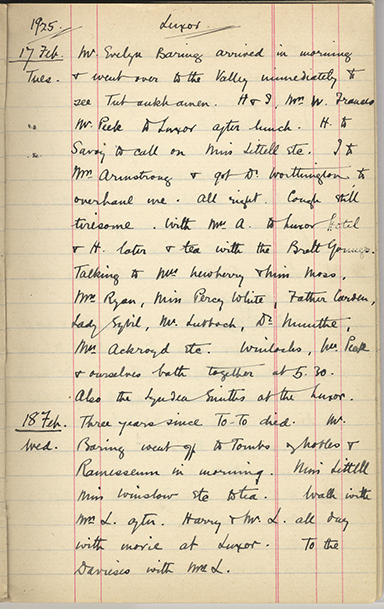 1925. Luxor.
17 Feb. Mr Evelyn Baring arrived in morning
Tues. & went over to the Valley immediately to
see Tutankhamen. H & I, Mrs W. Francis
Mr. Peek to Luxor after lunch. H. to
Savoy to call on Miss Littell etc. I to
Mrs Armstrong & got Dr Worthington to
overhaul me. All right. Cough still
tiresome. With Mrs A. to Luxor Hotel
& H. later & tea with the Bratt
Talking to Mrs Newberry & Miss Moss,
Mrs Ryan, Miss Percy White, Father
Lady Sybil, Mr. Lubbock, Dr Munthe,
Mrs Ackroyd etc. Winlocks, Mr Peek
& ourselves both together at 5.30.
Also the Lindsea Smiths at the Luxor.
18 Feb. Three years since To-To died. Mr.
Wed. Baring went off to Tombs of Nobles &
Ramesseum in morning. Miss Littell
Miss Winslow etc to tea. Walk with
Mrs L. after. Harry & Mr. L. all day
with movie at Luxor. To the
Davieses with Mrs L.